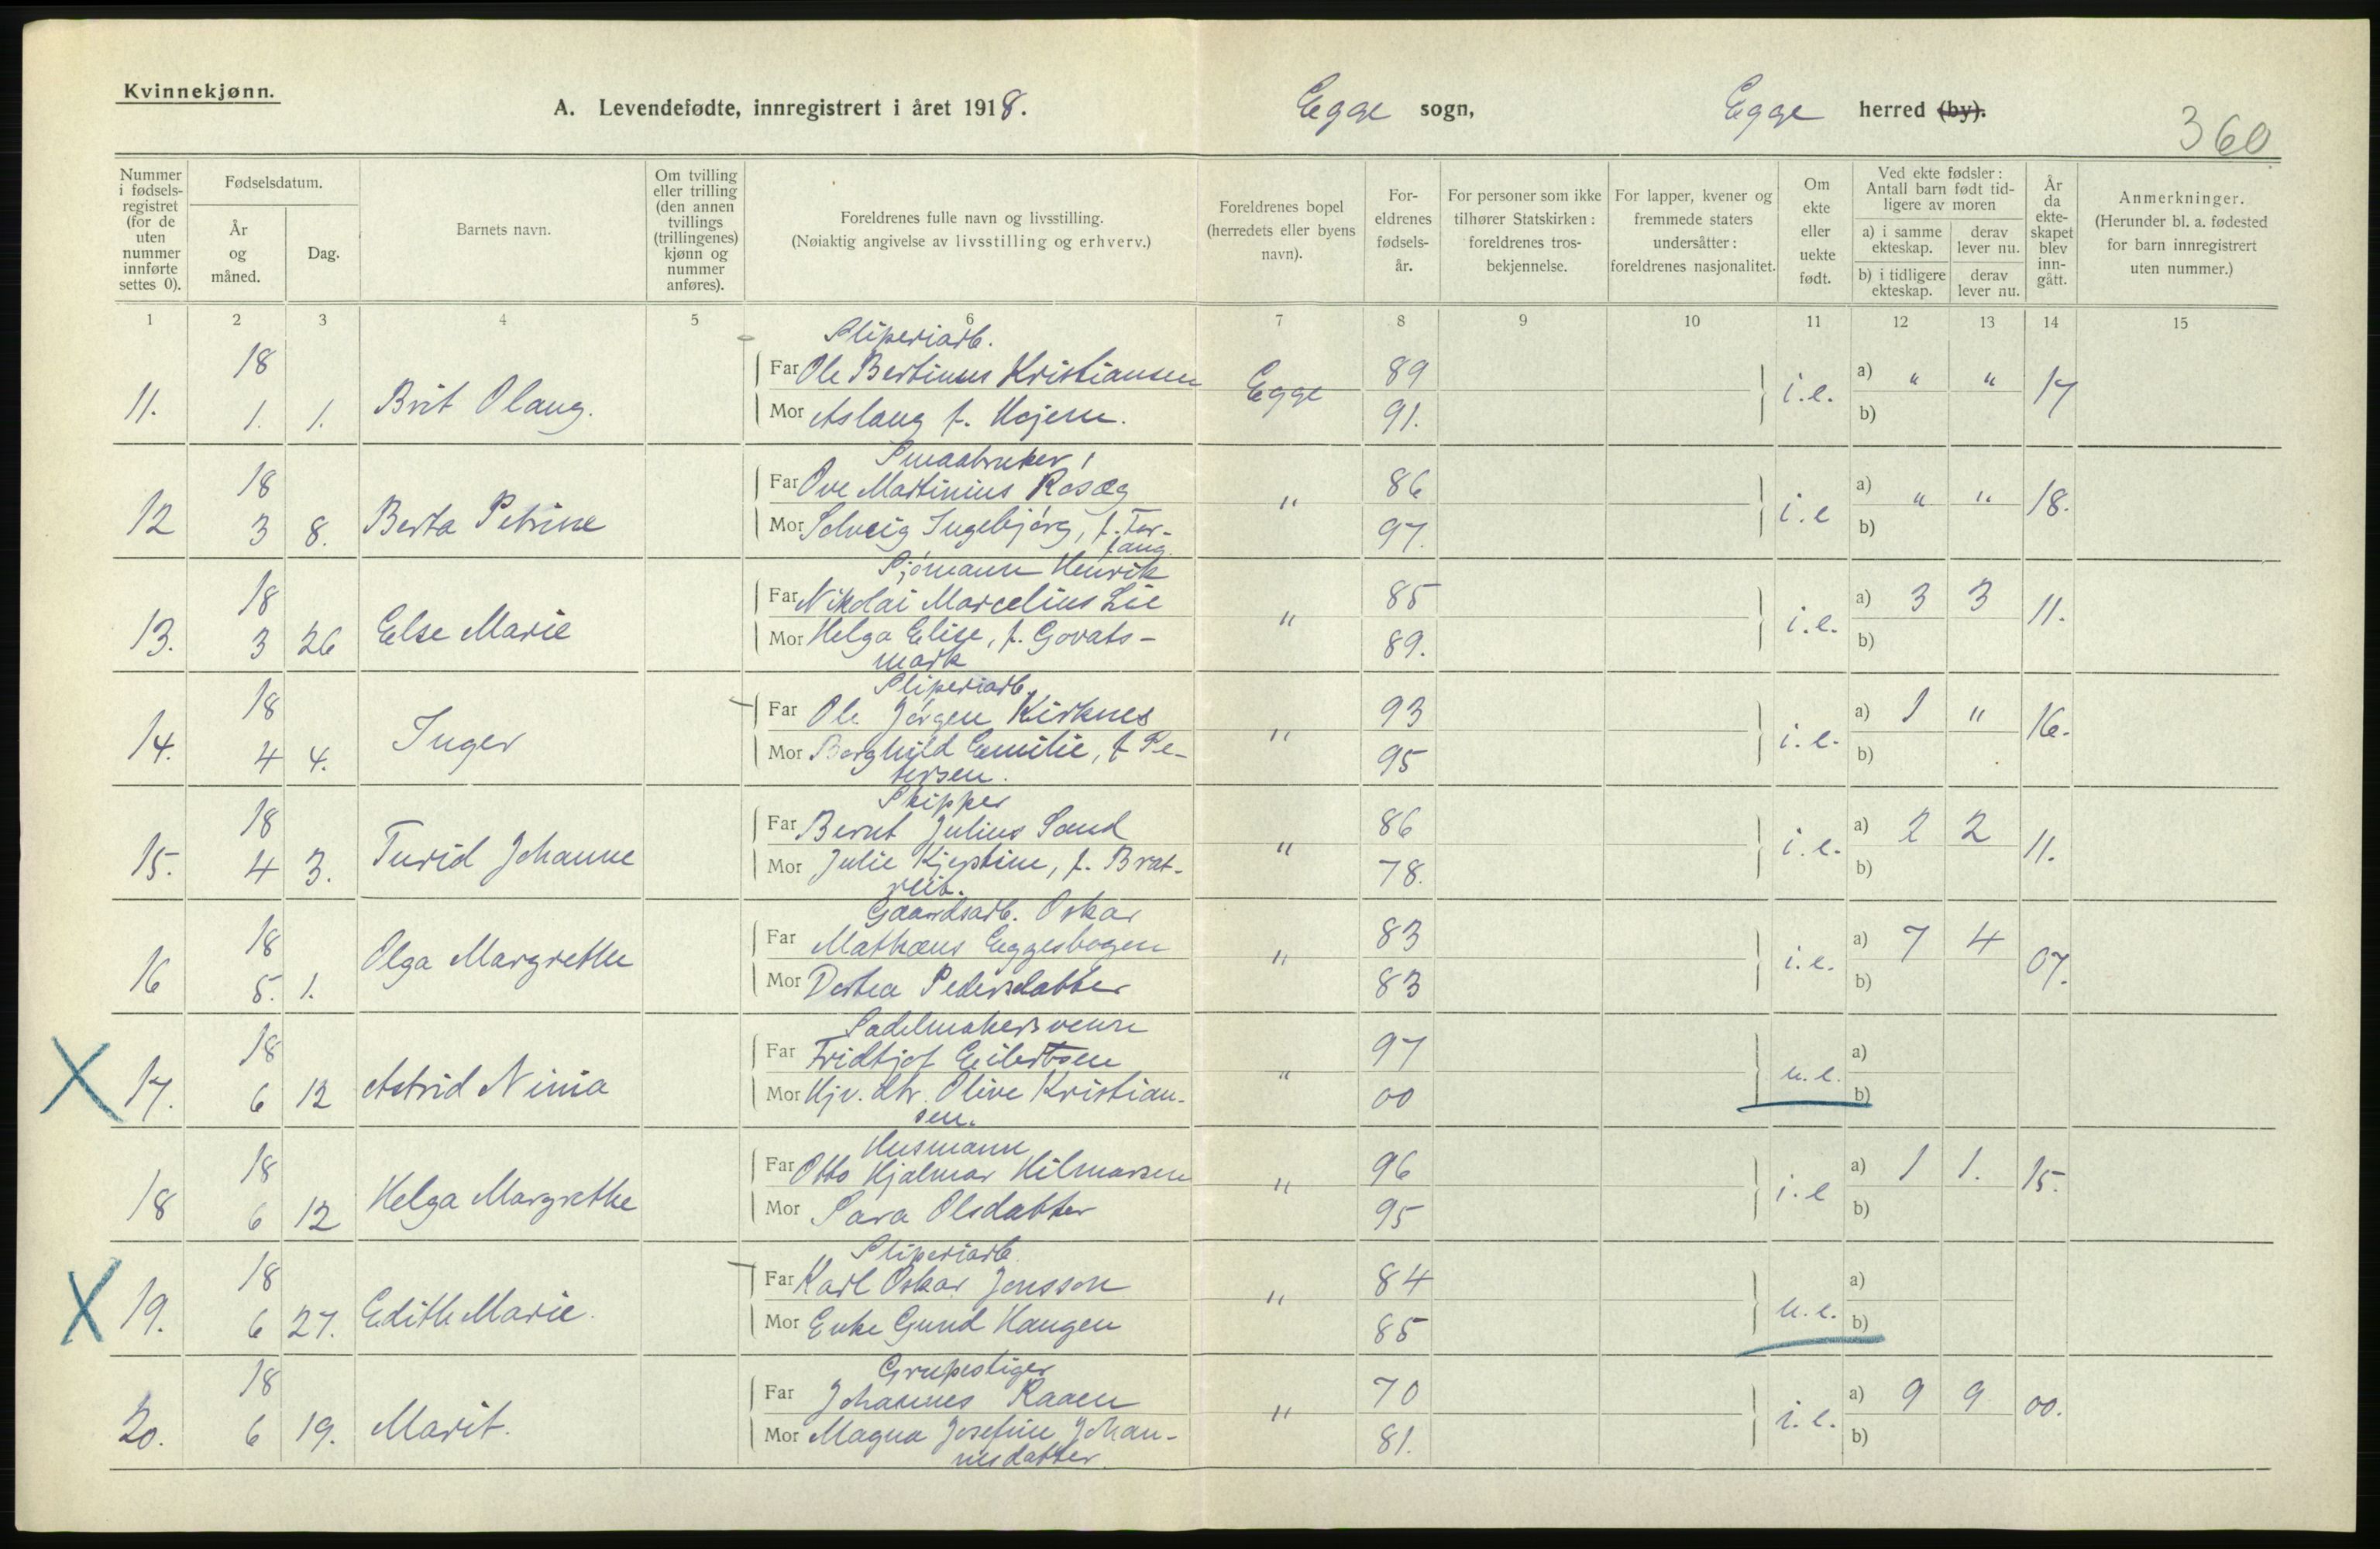 Kvinnekjønn.
A. Levendefødte, innregistrert i året 1918.
Egge sogn,
Egge herred (by).
360
Nummer i fødsels-registret (for de uten nummer innførte settes 0).
Fødselsdatum.
År og måned.
Dag.
Barnets navn.
Om tvilling eller trilling (den annen tvillings (trillingenes) kjønn og nummer anføres).
Foreldrenes fulle navn og livsstilling.
(Nøiaktig angivelse av livsstilling og erhverv.)
Foreldrenes bopel (herredets eller byens navn).
For-eldrenes fødsels-år.
For personer som ikke tilhører Statskirken: foreldrenes tros-bekjennelse.
For lapper, kvener og fremmede staters undersåtter: foreldrenes nasjonalitet.
Om ekte eller uekte født.
Ved ekte fødsler: Antall barn født tid-ligere av moren
a) i samme ekteskap.
derav lever nu.
b) i tidligere ekteskap.
derav lever nu.
År da ekte-skapet blev inn-gått.
Anmerkninger.
(Herunder bl. a. fødested for barn innregistrert uten nummer.)
1 2 3 4 5 6 7 8 9 10 11 12 13 14 15
Sliperiarb.
18 Far Ole Bertinus Kristiansen Egge 89 i.e. a) " " 17
11. 1. 1. Brit Olaug. Mor Aslaug f. Hojem. 91. b)
Smaabruker
18 Far Ove Martinius Rosæg " 86 i.e a) " " 18.
12 3 8. Berta Petrine Mor Solveig Ingebjørg, f. For-
fang 97. b)
Sjømann Henrik
18 Far Nikolai Marcelius Lie " 85 i.e. a) 3 3 11.
13. 3 26 Else Marie Mor Helga Elise, f. Govats-
mark 89. b)
Sliperiarb.
18 Far Ole Jørgen Kirknes " 93 i.e. a) 1 " 16.
14. 4 4. Inger Mor Borghild Emilie, f Pe-
tersen. 95 b)
Skipper
18 Far Bernt Julius Sand " 86 i.e. a) 2 2 11.
15. 4 3. Turid Johanne Mor Julie Kjerstine, f. Brat-
reit. 78. b)
Gaardsarb. Oskar
18 Far Mathæus Eggesbogen " 83 i.e. a) 7 4 07.
16 5. 1. Olga Margrethe Mor Dortea Pedersdatter 83 b)
Sadelmakersvenn
18 Far Fridtjof Eilertsen " 97 u.e. a)
17. 6 12 Astrid Ninia Mor Hjv. dtr. Olive Kristian-
sen. 00 b)
Husmann
18 Far Otto Hjalmar Hilmarsen " 96 i.e a) 1 1. 15.
18 6 12 Helga Margrethe Mor Sara Olsdatter 95 b)
Sliperiarb.
18 Far Karl Oskar Jonsson " 84 u.e. a)
19. 6 27. Edith Marie. Mor Enke Gund Haugen 85 b)
Grubestiger
18 Far Johannes Raaen " 70 i.e. a) 9 9 00.
20. 6 19. Marit. Mor Magna Josefine Johan-
nesdatter 81. b)